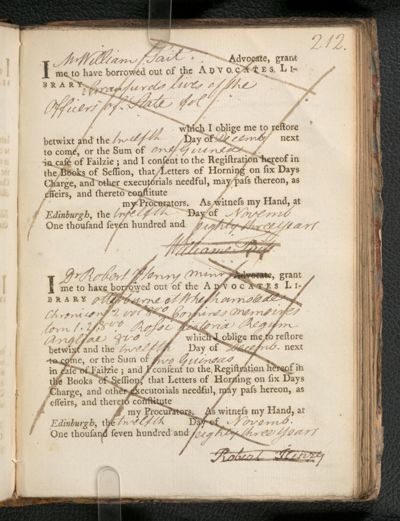 212.
I Mr William Tait. Advocate, grant
me to have borrowed out of the ADVOCATES LI-
BRARY Crawfurds lives of the
Officers of State fol
which I oblige me to restore
betwixt and the twelfth Day of Decemb. next
to come, or the Sum of one Guinea
in case of Failzie; and I consent to the Registration hereof in
the Books of Session, that Letters of Horning on six Days
Charge, and other executorials needful, may pass thereon, as
effeirs, and thereto constitute
my Procurators. As witness my Hand, at
Edinburgh, the twelfth Day of Novemb
One thousand seven hundred and eighty three Years
William Tait
I Dr Robert Henry minr Advocate, grant
me to have borrowed out of the ADVOCATES LI-
BRARY otterburne et Whethamstede
Chronicon 2 vol 8vo memoires
tom 1. 2 8vo Rossi historia Regum
Angliae 8vo which I oblige me to restore
betwixt and the twelfth Day of Decemb. next
to come, or the Sum of two Guineas
in case of Failzie; and I consent to the Registration hereof in
the Books of Session, that Letters of Horning on six Days
Charge, and other executorials needful, may pass hereon, as
effeirs, and thereto constitute
my Procurators. As witness my Hand, at
Edinburgh, the twelfth Day of Novemb.
One thousand seven hundred and eighty three Years
Robert Henry